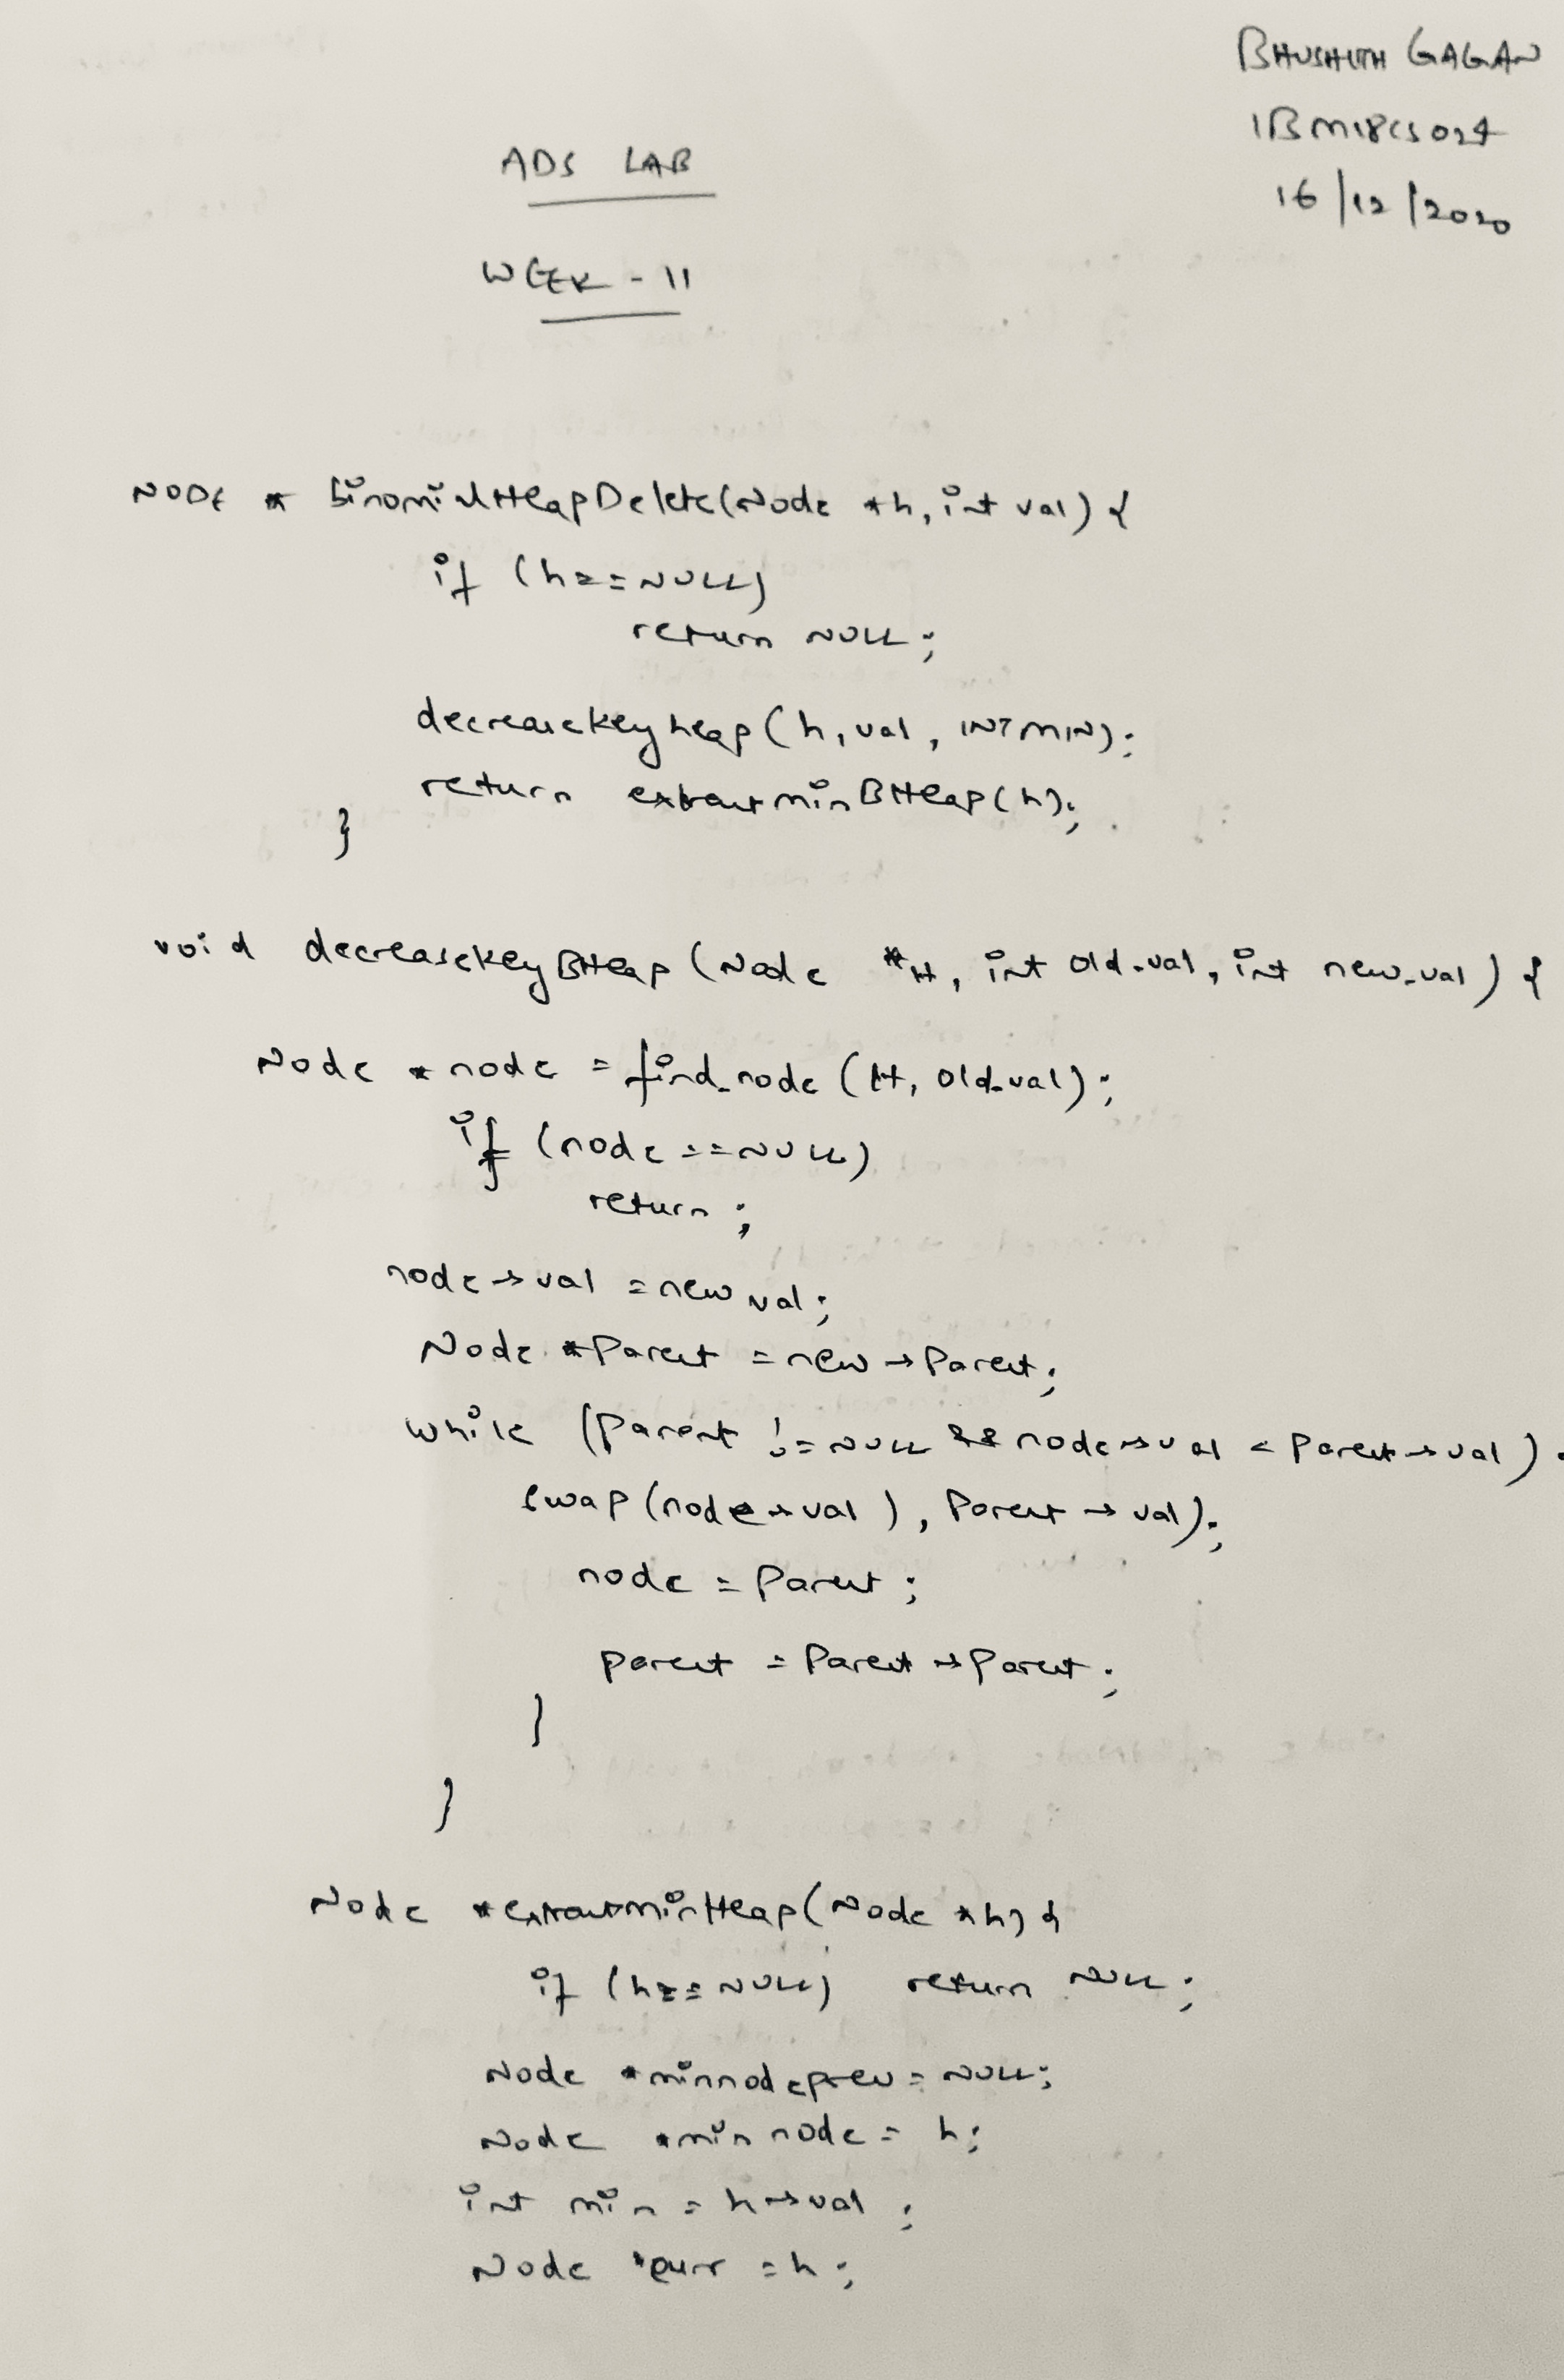 BHUSHITH GAGAN
1BM18CS024
16/12/2020
ADS LAB
WEEK - 11
NODE * binomialHeapDelete(Node *h, int val) {
if (h==NULL)
return NULL;
decreasekeyheap(h, val, INTMIN);
return extractminBHeap(h);
}
void decreasekeyBHeap (Node *H, int old_val, int new_val) {
Node *node = find_node (H, old_val);
if (node ==NULL)
return ;
node → val = new val;
Node *Parent = new → Parent;
while (Parent != NULL && node→val < Parent→val)
swap (node→val ), Parent → val);
node = Parent ;
parent = Parent → Parent ;
}
}
Node *extractminHeap(Node *h) {
if (h==NULL) return NULL;
Node *minnodeprev = NULL;
Node *min node = h;
int min = h→val ;
Node *curr = h ;